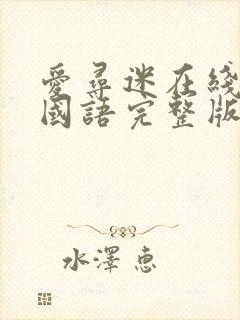 愛尋迷在綫
國語完整版
水澤惠